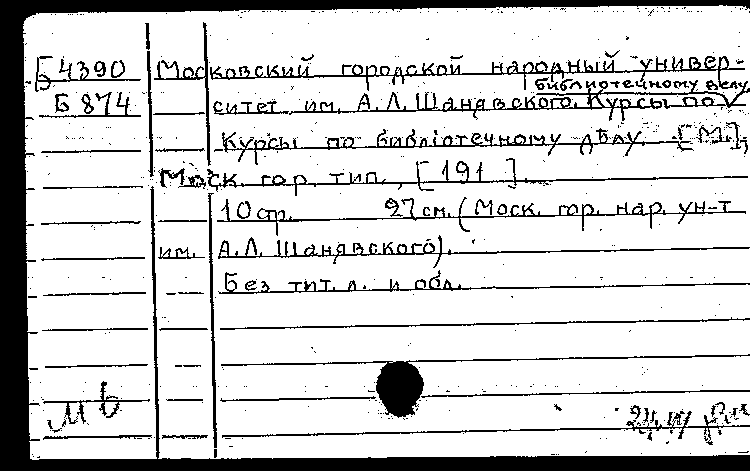 Б 4390 Московский городской народный универ-
библиотечному делу
Б 874 ситет им. А.Л. Шанявского. Курсы по V
Курсы по библіотечному дѣлу. [М.],
Моск. гор. тип., [191 ].
10 стр. 27 см. (Моск. гор. нар. ун-т
им. А.Л. Шанявского).
Без тит. л. и обл.